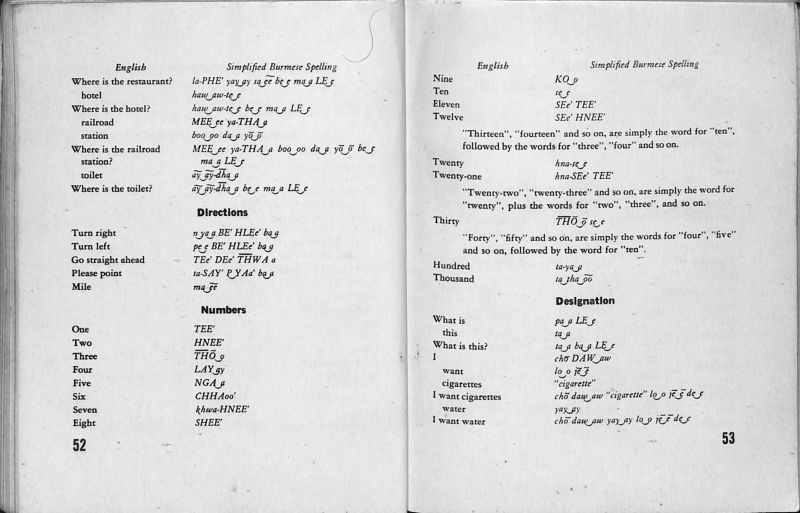 English Simplified Burmese Spelling
Where is the restaurant? la-PHE' yay͜ay sa͜ee be͜e ma͜a LE͜e
hotel haw͜aw-te͜e
Where is the hotel? haw͜aw-te͜e be͜e ma͜a LE͜e
railroad MEE͜ee ya-THA͜a
station boo͜oo da͜a yō͜ō
Where is the railroad MEE͜ee ya-THA͜a boo͜oo da͜a yō͜ō be͜e
station? ma͜a LE͜e
toilet ay͜ay-dha͜a
Where is the toilet? ay͜ay-dha͜a be͜e ma͜a LE͜e
Directions
Turn right nya͜a BE' HLEe' ba͜a
Turn left pe͜e BE' HLEe' ba͜a
Go straight ahead TEe' DEe' THWA a
Please point ta-SAY' PYAa' ba͜a
Mile ma͜ee
Numbers
One TEE'
Two HNEE'
Three THŌ͜o
Four LAY͜ay
Five NGA͜a
Six CHHAoo'
Seven khwa-HNEE'
Eight SHEE'
52
English Simplified Burmese Spelling
Nine KO͜o
Ten se͜e
Eleven SEe' TEE'
Twelve SEe' HNEE'
"Thirteen", "fourteen" and so on, are simply the word for "ten",
followed by the words for "three", "four" and so on.
Twenty hna-se͜e
Twenty-one hna-SEe' TEE'
"Twenty-two", "twenty-three" and so on, are simply the word for
"twenty", plus the words for "two", "three", and so on.
Thirty THŌ͜ō se͜e
"Forty", "fifty" and so on, are simply the words for "four", "five"
and so on, followed by the word for "ten".
Hundred ta-ya͜a
Thousand ta͜tha͜oo
Designation
What is pa͜a LE͜e
this ta͜a
What is this? ta͜a ba͜a LE͜e
I chō DAW͜aw
want lo͜o jē͜ē
cigarettes "cigarette"
I want cigarettes chō daw͜aw "cigarette" lo͜o jē͜ē de͜e
water yay͜ay
I want water chō daw͜aw yay͜ay lo͜o jē͜ē de͜e
53